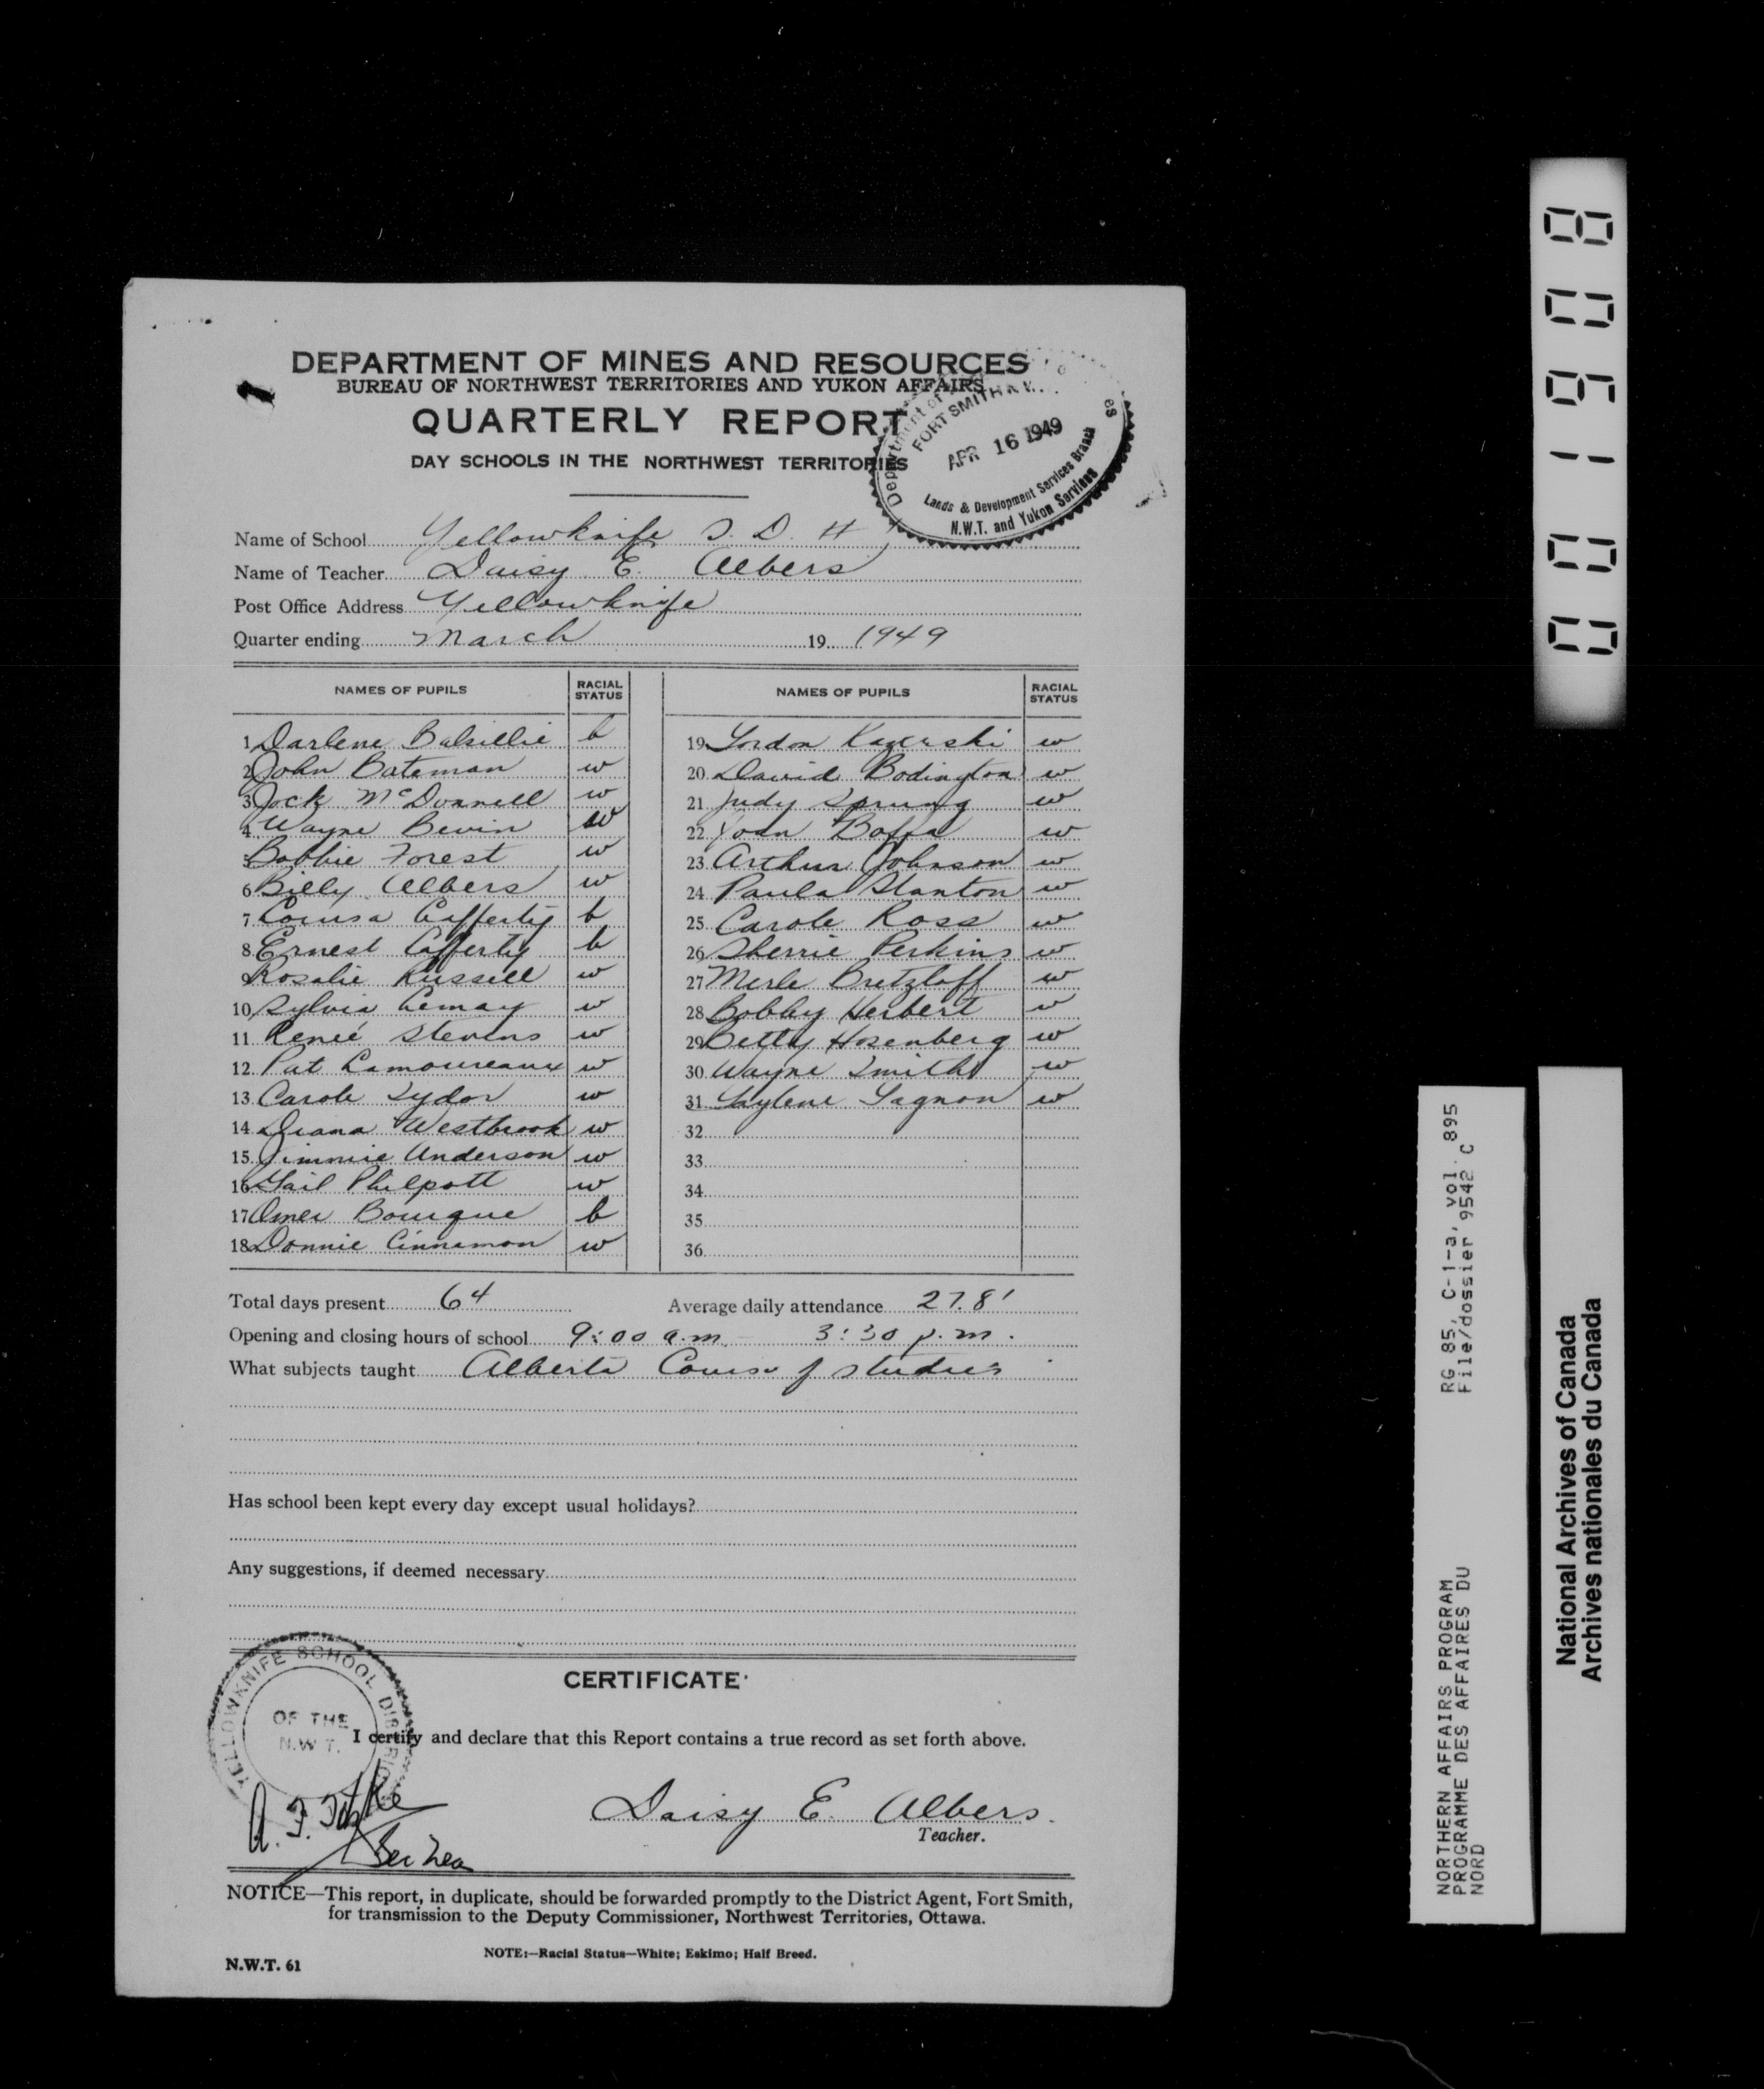 DEPARTMENT OF MINES AND RESOURCES
BUREAU OF NORTHWEST TERRITORIES AND YUKON AFFAIRS
QUARTERLY REPORT
DAY SCHOOLS IN THE NORTHWEST TERRITORIES
Department of
FORT SMITH
APR 16 1949
Lands & Development Services Branch
N.W.T. and Yukon Services
Name of School Yellowknife S. D. #
Name of Teacher Daisy E. Albers
Post Office Address Yellowknife
Quarter ending March 19 1949
NAMES OF PUPILS RACIAL STATUS NAMES OF PUPILS RACIAL STATUS
1 Darlene Balsillie b
2 John Bateman w
3 Jock McDonnell w
4 Wayne Bevin w
5 Bobbie Forest w
6 Billy Albers w
7 Louisa Lafferty b
8 Ernest Lafferty b
Rosalie Russell w
10 Sylvia Lemay w
11 Reneé Stevens w
12 Pat Lamoureaux w
13 Carole Sydor w
14 Diana Westbrook w
15 Jimmie Anderson w
16 Gail Philpott w
17 Omer Bourque b
18 Donnie Cinnamon w
19 Gordon w
20 David Bodington w
21 Judy Sprung w
22 Boffa w
23 Arthur Johnson w
24 Paula Stanton w
25 Carole Ross w
26 Sherrie Perkins w
27 Merle Bretzlaff w
28 Bobby Herbert w
29 Betty Hosenberg w
30 Wayne Smith w
31 Gaylene Gagnon w
32
33
34
35
36
Total days present 64 Average daily attendance 27.81
Opening and closing hours of school 9:00 a.m. - 3:30 p.m.
What subjects taught Alberta Course of studies
Has school been kept every day except usual holidays?
Any suggestions, if deemed necessary
YELLOWKNIFE SCHOOL DISTRICT
OF THE
N.W.T.
CERTIFICATE
I certify and declare that this Report contains a true record as set forth above.
Daisy E. Albers.
Teacher.
NOTICE—This report, in duplicate, should be forwarded promptly to the District Agent, Fort Smith,
for transmission to the Deputy Commissioner, Northwest Territories, Ottawa.
NOTE:—Racial Status—White; Eskimo; Half Breed.
N.W.T. 61
001908
RG 85, C-1-a, vol. 895
File/dossier 9542 C
NORTHERN AFFAIRS PROGRAM
PROGRAMME DES AFFAIRES DU
NORD
National Archives of Canada
Archives nationales du Canada